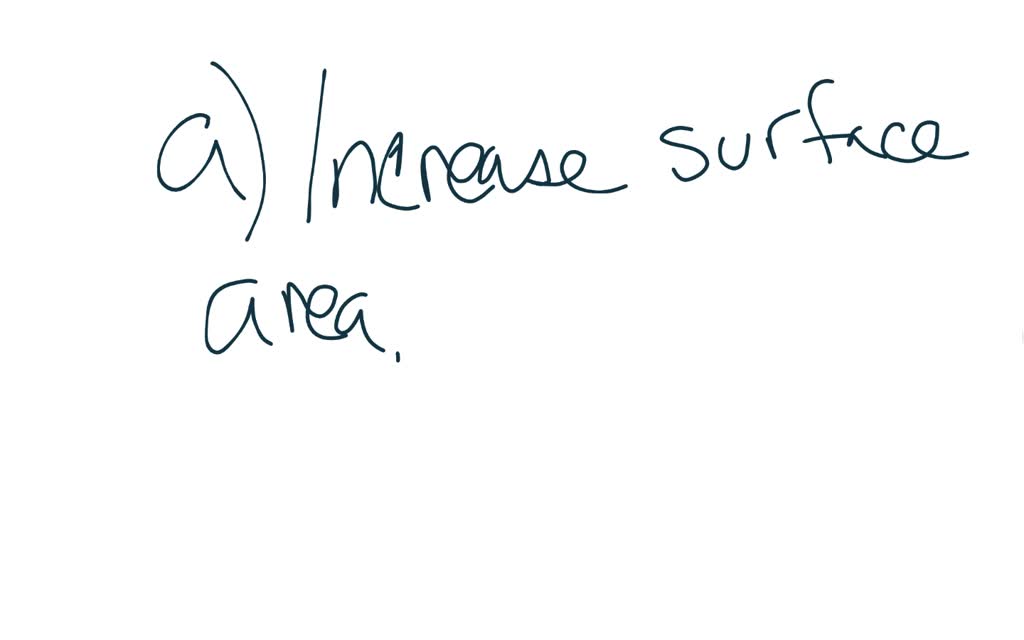 a) Increase surface
area.